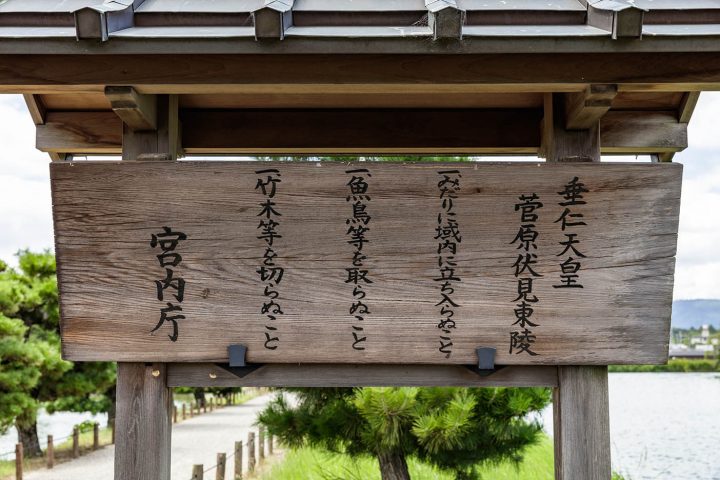 垂仁天皇
菅原伏見東陵
一みだりに域内に立ち入らぬこと
一魚鳥等を取らぬこと
一竹木等を切らぬこと
宮内庁